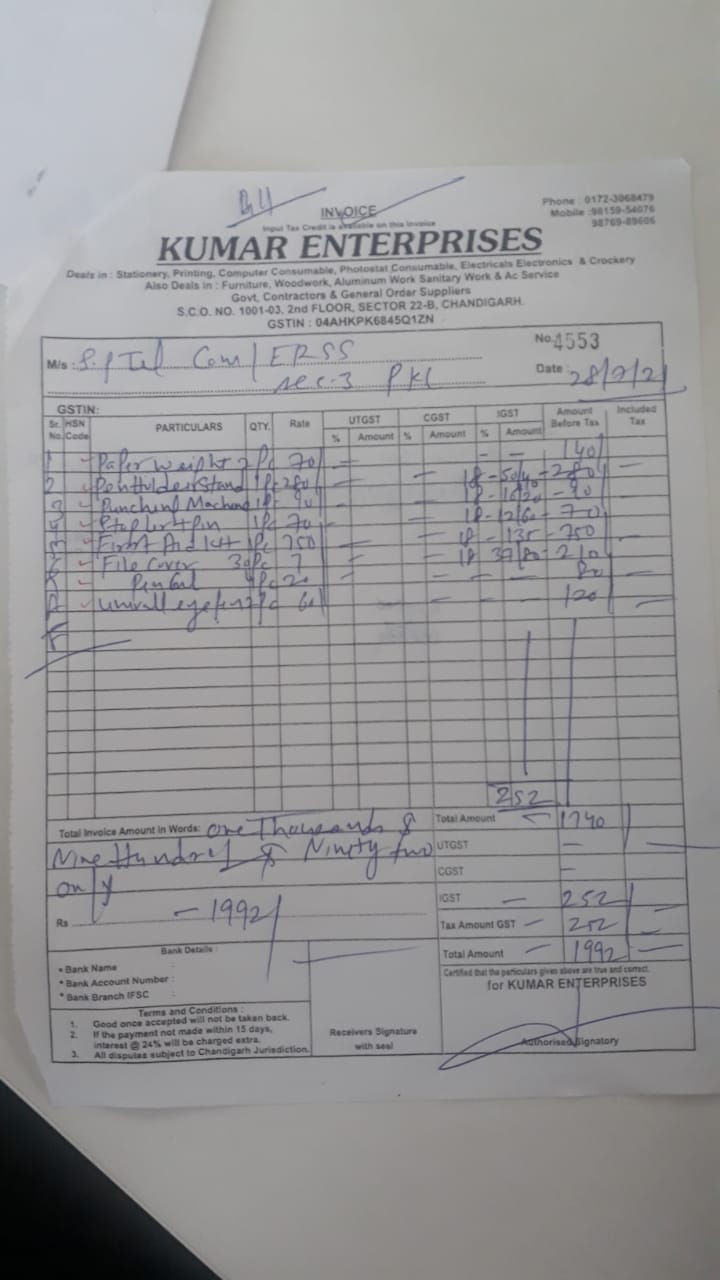 Bill
INVOICE
Input Tax Credit is available on this Invoice
Phone : 0172-3068479
Mobile :98159-54076
98769-89606
KUMAR ENTERPRISES
Deals in : Stationery, Printing, Computer Consumable, Photostat Consumable, Electricals Electronics & Crockery
Also Deals in : Furniture, Woodwork, Aluminum Work Sanitary Work & Ac Service
Govt, Contractors & General Order Suppliers
S.C.O. NO. 1001-03, 2nd FLOOR, SECTOR 22-B, CHANDIGARH.
GSTIN : 04AHKPK6845Q1ZN
M/s : S.P Tel Com/ERSS
No. 4553
sec-3 PKL
Date : 28/7/21
GSTIN:
Sr. No. HSN Code PARTICULARS QTY. Rate UTGST % Amount CGST % Amount IGST % Amount Amount Before Tax Included Tax
1 Paper weight 2 Pc 70 - - 140
2 Penholder Stand 1Pc 280 18 - 50/40 - 280
3 Punching Machine 1Pc 90 18 - 16/20 - 90
4 Stapler+Pin 1Pc 70 18 - 12/60 - 70
5 First Aid Kit 1Pc 750 18 - 135 - 750
6 File Cover 30Pc 7 18 37/80 - 210
Pc 20 - - 80
2Pc 60 - - 120
252
Total Invoice Amount in Words: One Thousands &
Nine Hundred & Ninety two
only
Rs - 1992/
Total Amount - 1740
UTGST -
CGST -
IGST - 252
Tax Amount GST - 252
Total Amount - 1992
Bank Details :
• Bank Name :
* Bank Account Number :
* Bank Branch IFSC :
Terms and Conditions :
1. Good once accepted will not be taken back.
2. If the payment not made within 15 days,
interest @ 24% will be charged extra.
3. All disputes subject to Chandigarh Jurisdiction.
Receivers Signature
with seal
Certified that the particulars given above are true and correct.
for KUMAR ENTERPRISES
Authorised Signatory